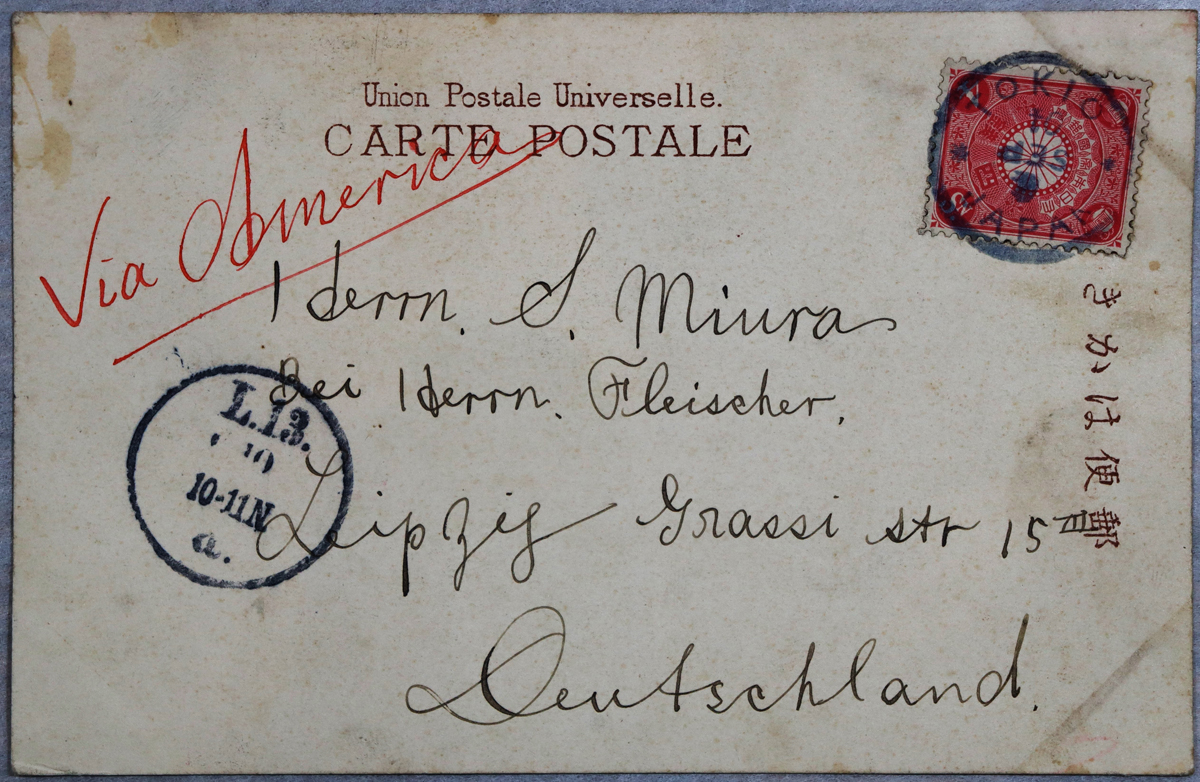 Union Postale Universelle.
CARTE POSTALE
Via America
Herrn. S. Miura
Bei Herrn. Fleischer.
Leipzig Grassi str 15
Deutschland.
郵便はかき
TOKIO
JAPAN
L.13.
10-11N
a.